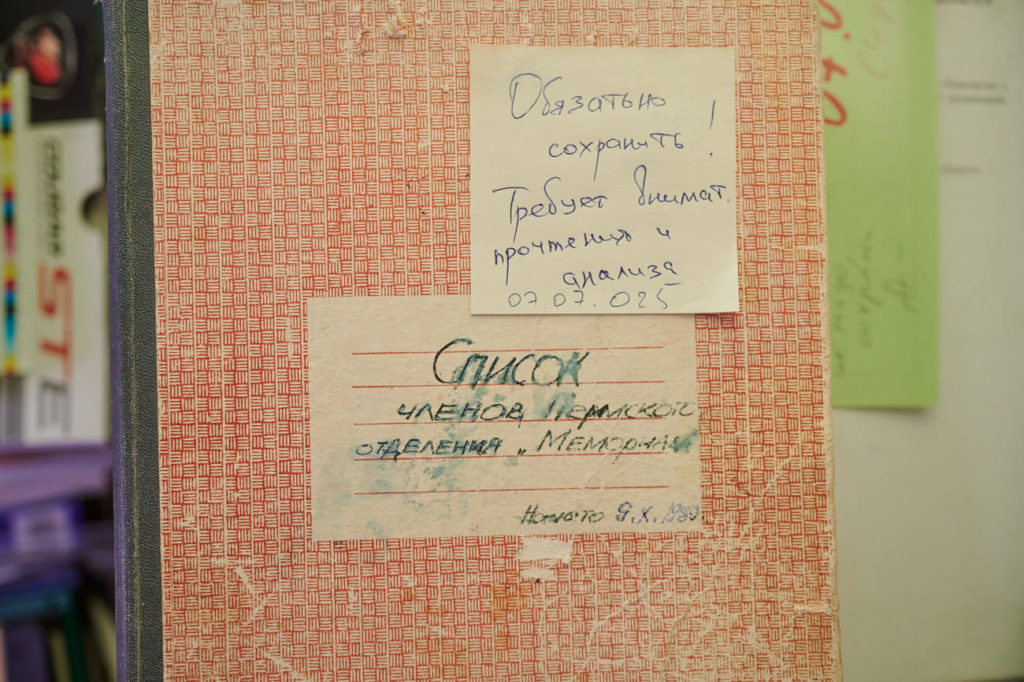 Обязатьно
сохранить !
Требует внимат.
прочтения и
анализа
07.07.025
Список
членов Пермского
отделения „Мемориал
Начато 9.X.1989.
STE